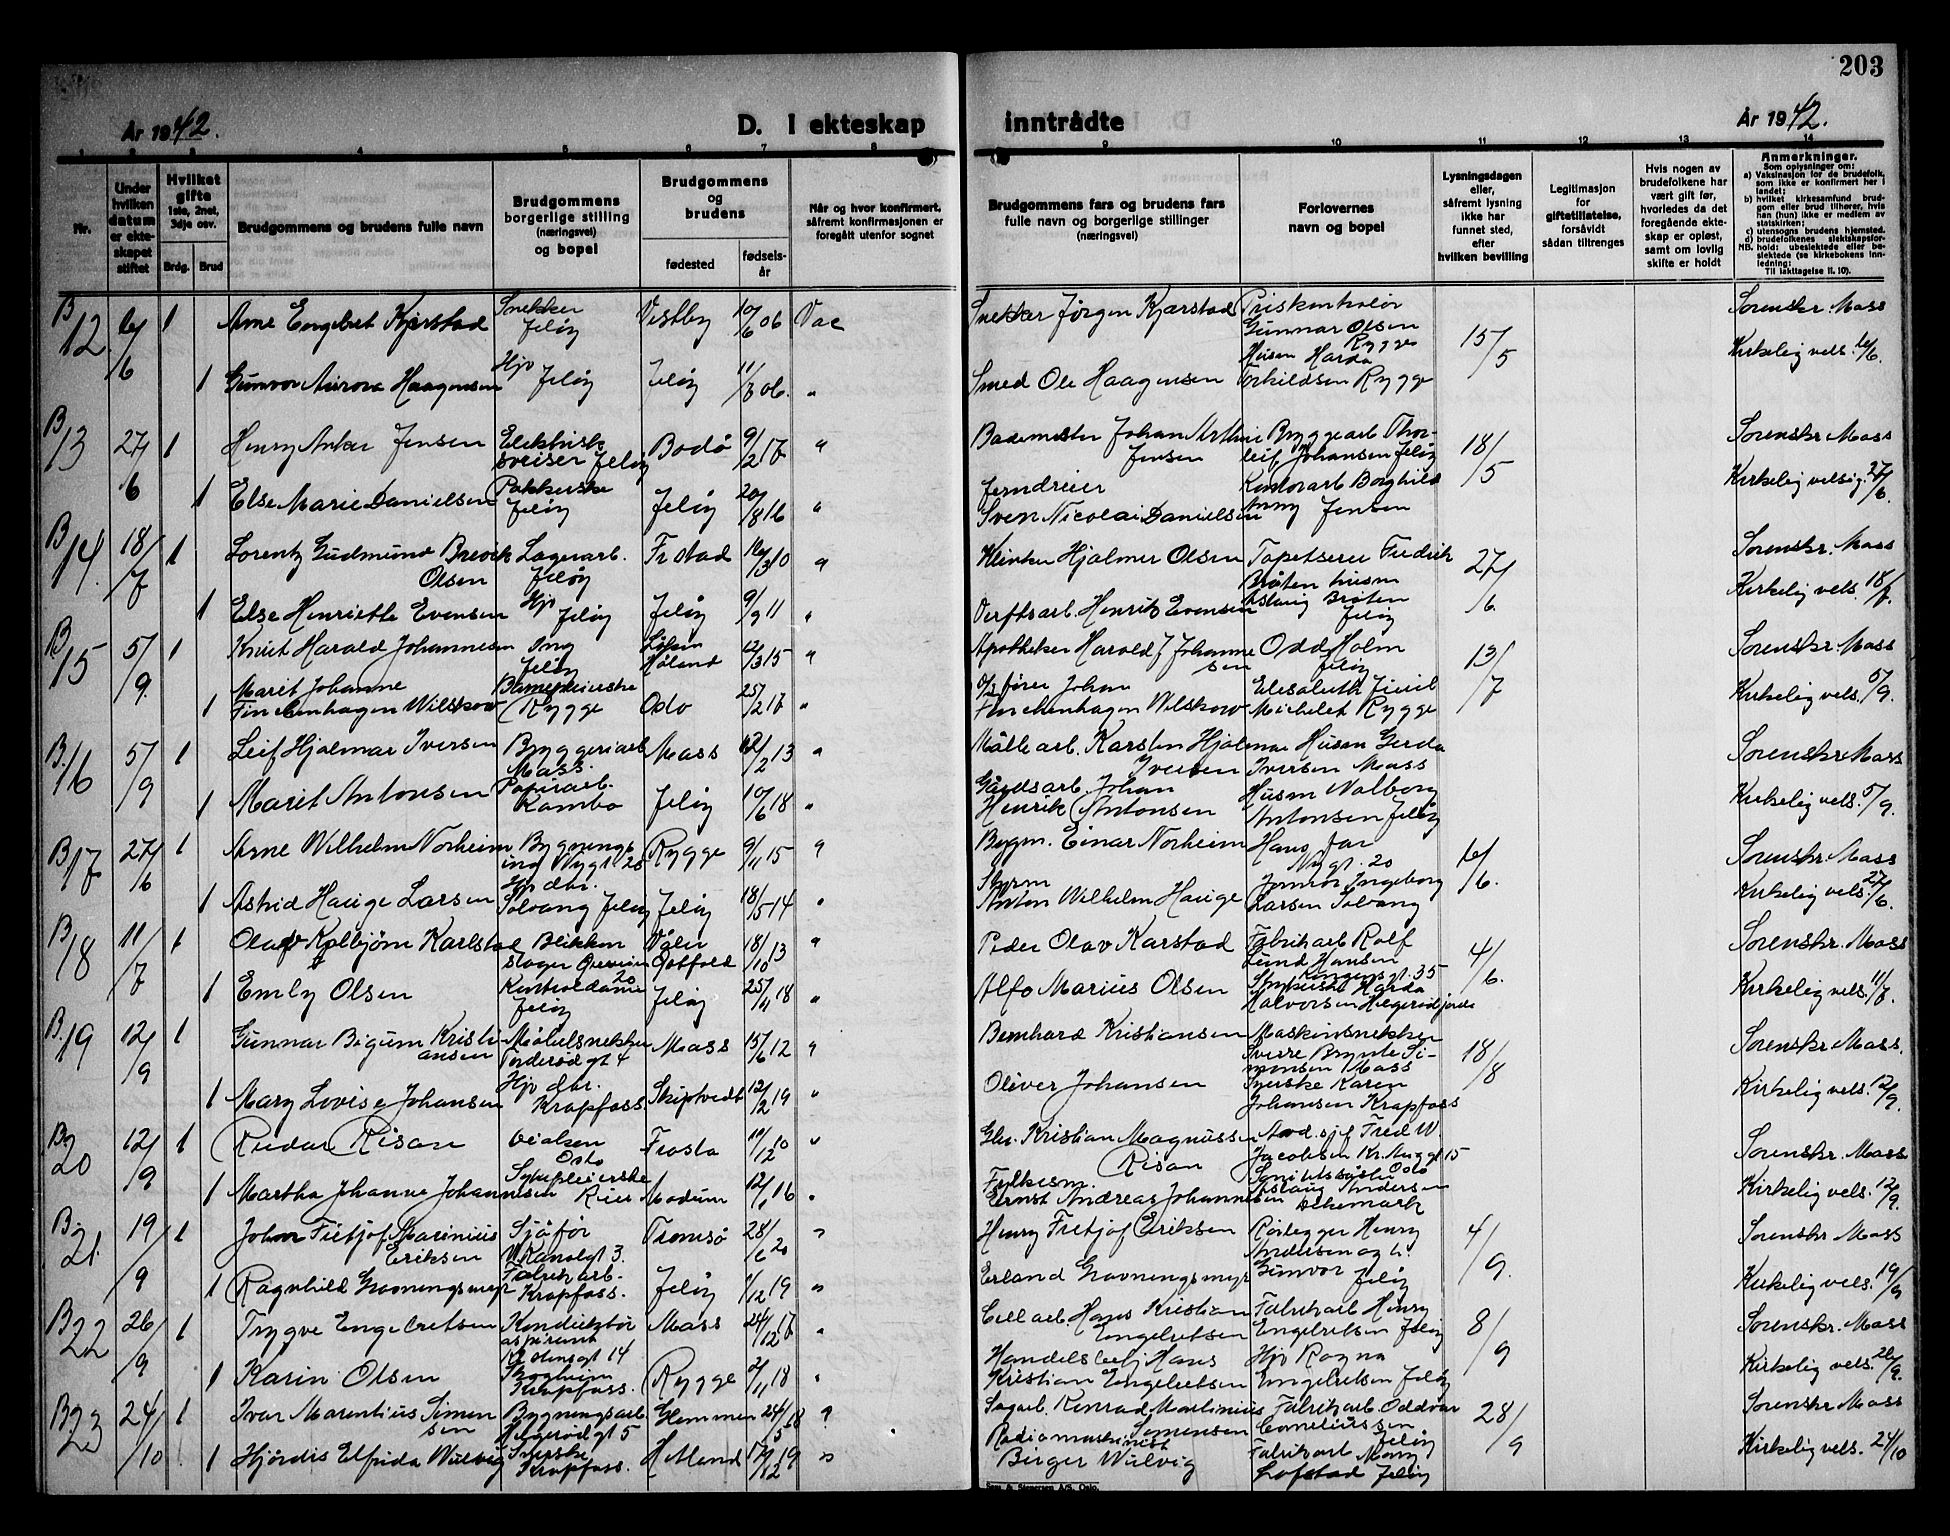 203
År 1942.
D. I ekteskap
inntrådte
År 1942.
1 2 3 4 5 6 7 8 9 10 11 12 13 14
Nr.
Under hvilken datum er ekteskapet stiftet
Hvilket gifte 1ste, 2net, 3dje osv.
Brdg. Brud
Brudgommens og brudens fulle navn
Brudgommens borgerlige stilling (næringsvei) og bopel
Brudgommens og brudens
fødested
fødselsår
Når og hvor konfirmert, såfremt konfirmasjonen er foregått utenfor sognet
Brudgommens fars og brudens fars fulle navn og borgerlige stillinger (næringsvei)
Forlovernes navn og bopel
Lysningsdagen eller, såfremt lysning ikke har funnet sted, efter hvilken bevilling
Legitimasjon for giftetillatelse, forsåvidt sådan tiltrenges
Hvis nogen av brudefolkene har vært gift før, hvorledes da det foregående ekteskap er opløst, samt om lovlig skifte er holdt
Anmerkninger.
Som oplysninger om:
a) Vaksinasjon for de brudefolk, som ikke er konfirmert her i landet;
b) hvilket kirkesamfund brudgom eller brud tilhører, hvis han (hun) ikke er medlem av statskirken;
c) utensogns brudens hjemsted.
d) brudefolkenes slektskapsforhold: ubeslektede eller beslektede (se kirkebokens innledning:
NB.
Til iakttagelse II. 10).
B 12 6/6 1 Arne Engebret Kjærstad Snekker Jeløy Vestby 10/6 06 Vac Snekker Jörgen Kjærstad Priskontrolör Gunnar Olsen Rygge 15/5 Sorenskr. Moss
1 Gunvor Aurora Haagensen Hjv Jeløy Jeløy 11/3 06. " Smed Ole Haagensen Husm Harda Torkildsen Rygge Kirkelig vels. 6/6.
B 13 27/6 1 Henry Anker Jensen Elektrisk sveiser Jeløy Bodö 9/2 17 " Bademester Johan Arthur Jensen Byggearb Thorleif Johansen Jeløy 18/5 Sorenskr. Moss
1 Else Marie Danielsen Pakkerske Jeløy Jeløy 20/8 16 " Jerndreier Sven Nicolai Danielsen Kontorarb Borghild Anny Jensen Kirkelig velsig. 27/6.
B 14. 18/7 1 Lorentz Gudmund Brevik Olsen Lagerarb. Jeløy Fr stad 16/3 10 " Hjalmer Olsen Tapetserer Fredrik Bråten husm 27/6 Sorenskr. Moss
1 Else Henriette Evensen Hjv Jeløy Jeløy 9/9 11 " Verftsarb. Henrik Evensen Aslaug Bråten Jeløy Kirkelig vels. 18/7.
B 15 5/9. 1 Knut Harald Johannesen Ing Jeløy Höland 12/3 15 " Apotheker Harald J Johannesen Odd Holm Jeløy 13/7 Sorenskr. Moss
1 Marit Johanne Finchenhagen Wilskow Barnepleierske Rygge Oslo 25/2 17 " Johan Finchenhagen Wilskow Elisabeth Michelet Rygge Kirkelig vels. 5/9.
B. 16 5/9 1 Leif Hjalmar Iversen Bryggeriarb Moss. Moss 12/2 13 " Mållearb. Karsten Hjalmar Iversen Husm Gerda Iversen Moss Sorenskr Moss
1 Marit Antonsen Papirarb. Kambo Jeløy 10/6 18 " Gårdsarb. Johan Henrik Antonsen Husm Valborg Antonsen Jeløy Kirkelig vels. 5/9.
B 17 27/6 1 Arne Wilhelm Norheim Bygnings ing Nygt 20 Rygge 9/11 15 " Bygm. Einar Norheim Hans far Nygt. 20 6/6. Sorenskr. Moss
1 Astrid Hauge Larsen Hjv dtr. Solvang Jeløy Jeløy 18/5 14 " Styrm Anton Wilhelm Hauge Jomfru Ingeborg Larsen Solvang Kirkelig vels. 27/6.
B 18 11/7 1 Olav Kolbjörn Karlstad Blikkenslager 20 Våler Östfold 18/10 13 " Peder Olav Karstad Fabrikarb Rolf Lund Hansen Kongensgt. 35 4/6. Sorenskr. Moss
1 Emily Olsen Kontordame Jeløy Jeløy 25/11 18 " Alfo Marius Olsen Harda Halvorsen Helgerödfjorde Kirkelig vels. 11/7.
B. 19 12/9 1 Gunnar Bigum Kristiansen Möbelsnekker Torderödgt 4 Moss 15/6 12 " Bernhard Kristiansen Maskinsnekker Sverre Brynte Simonsen Moss 18/8 Sorenskr Moss.
1 Mary Lovise Johansen Hjv dtr. Krapfoss Skiptvedt 12/2 19 " Oliver Johansen Syerske Karen Johansen Krapfoss Kirkelig vels. 12/9.
B 20 12/9 1 Reidar Risan Oslo Frosta 10/12 10 " Kristian Magnussen Risan Avd. sjef Fred W. Jacobsen Kr. Augt 15 Oslo Sorenskr. Moss
1 Martha Johanne Johannesen Sykepleierske Rier Modum 12/1 16 " Ernst Andreas Johannesen Aslaug Andersen Kirkelig vels. 12/9.
B 21. 19/9 1 John Fritjof Marinius Eriksen Sjåför V. Kanalgt 3. Tromsö 28/6 20 " Henry Fritjof Eriksen Rörlegger Henry Andersen og h. 4/9. Sorenskr Moss
1 Ragnhild Gravningsmyr Fabrikarb. Krapfoss. Jeløy 1/12 19 " Erland Gravningsmyr Gunvor Jeløy Kirkelig vels. 19/9
B 22 26/9 1 Trygve Engebretsen Konduktör aspirant Kl. 14 Moss 24/12 17 " Cellarb Hans Kristian Engebretsen Fabrikarb Henry Engebretsen Jeløy 8/9 Sorenskr. Moss
1 Karin Olsen Skogheim Krapfoss. Rygge 2/11 18 " Handelsbetj Hans Kristian Engebretsen Hjv Ragna Engebretsen Jeløy Kirkelig vels. 26/9.
B 23 24/10 1 Ivar Marentius Simensen Bygningsarb. Helgerödgt 5 Glemmen 24/5 18 " Sagarb. Konrad Martinius Simensen Fabrikarb Oddvar Corneliussen Jeløy 28/9 Sorenskr. Moss
1 Hjördis Elfrida Wulvig Syerske Krapfoss. Hetland 17/12 19 " Radiomaskinist Birger Wulvig Fabrikarb Mary Lofstad Jeløy Kirkelig vels. 24/10